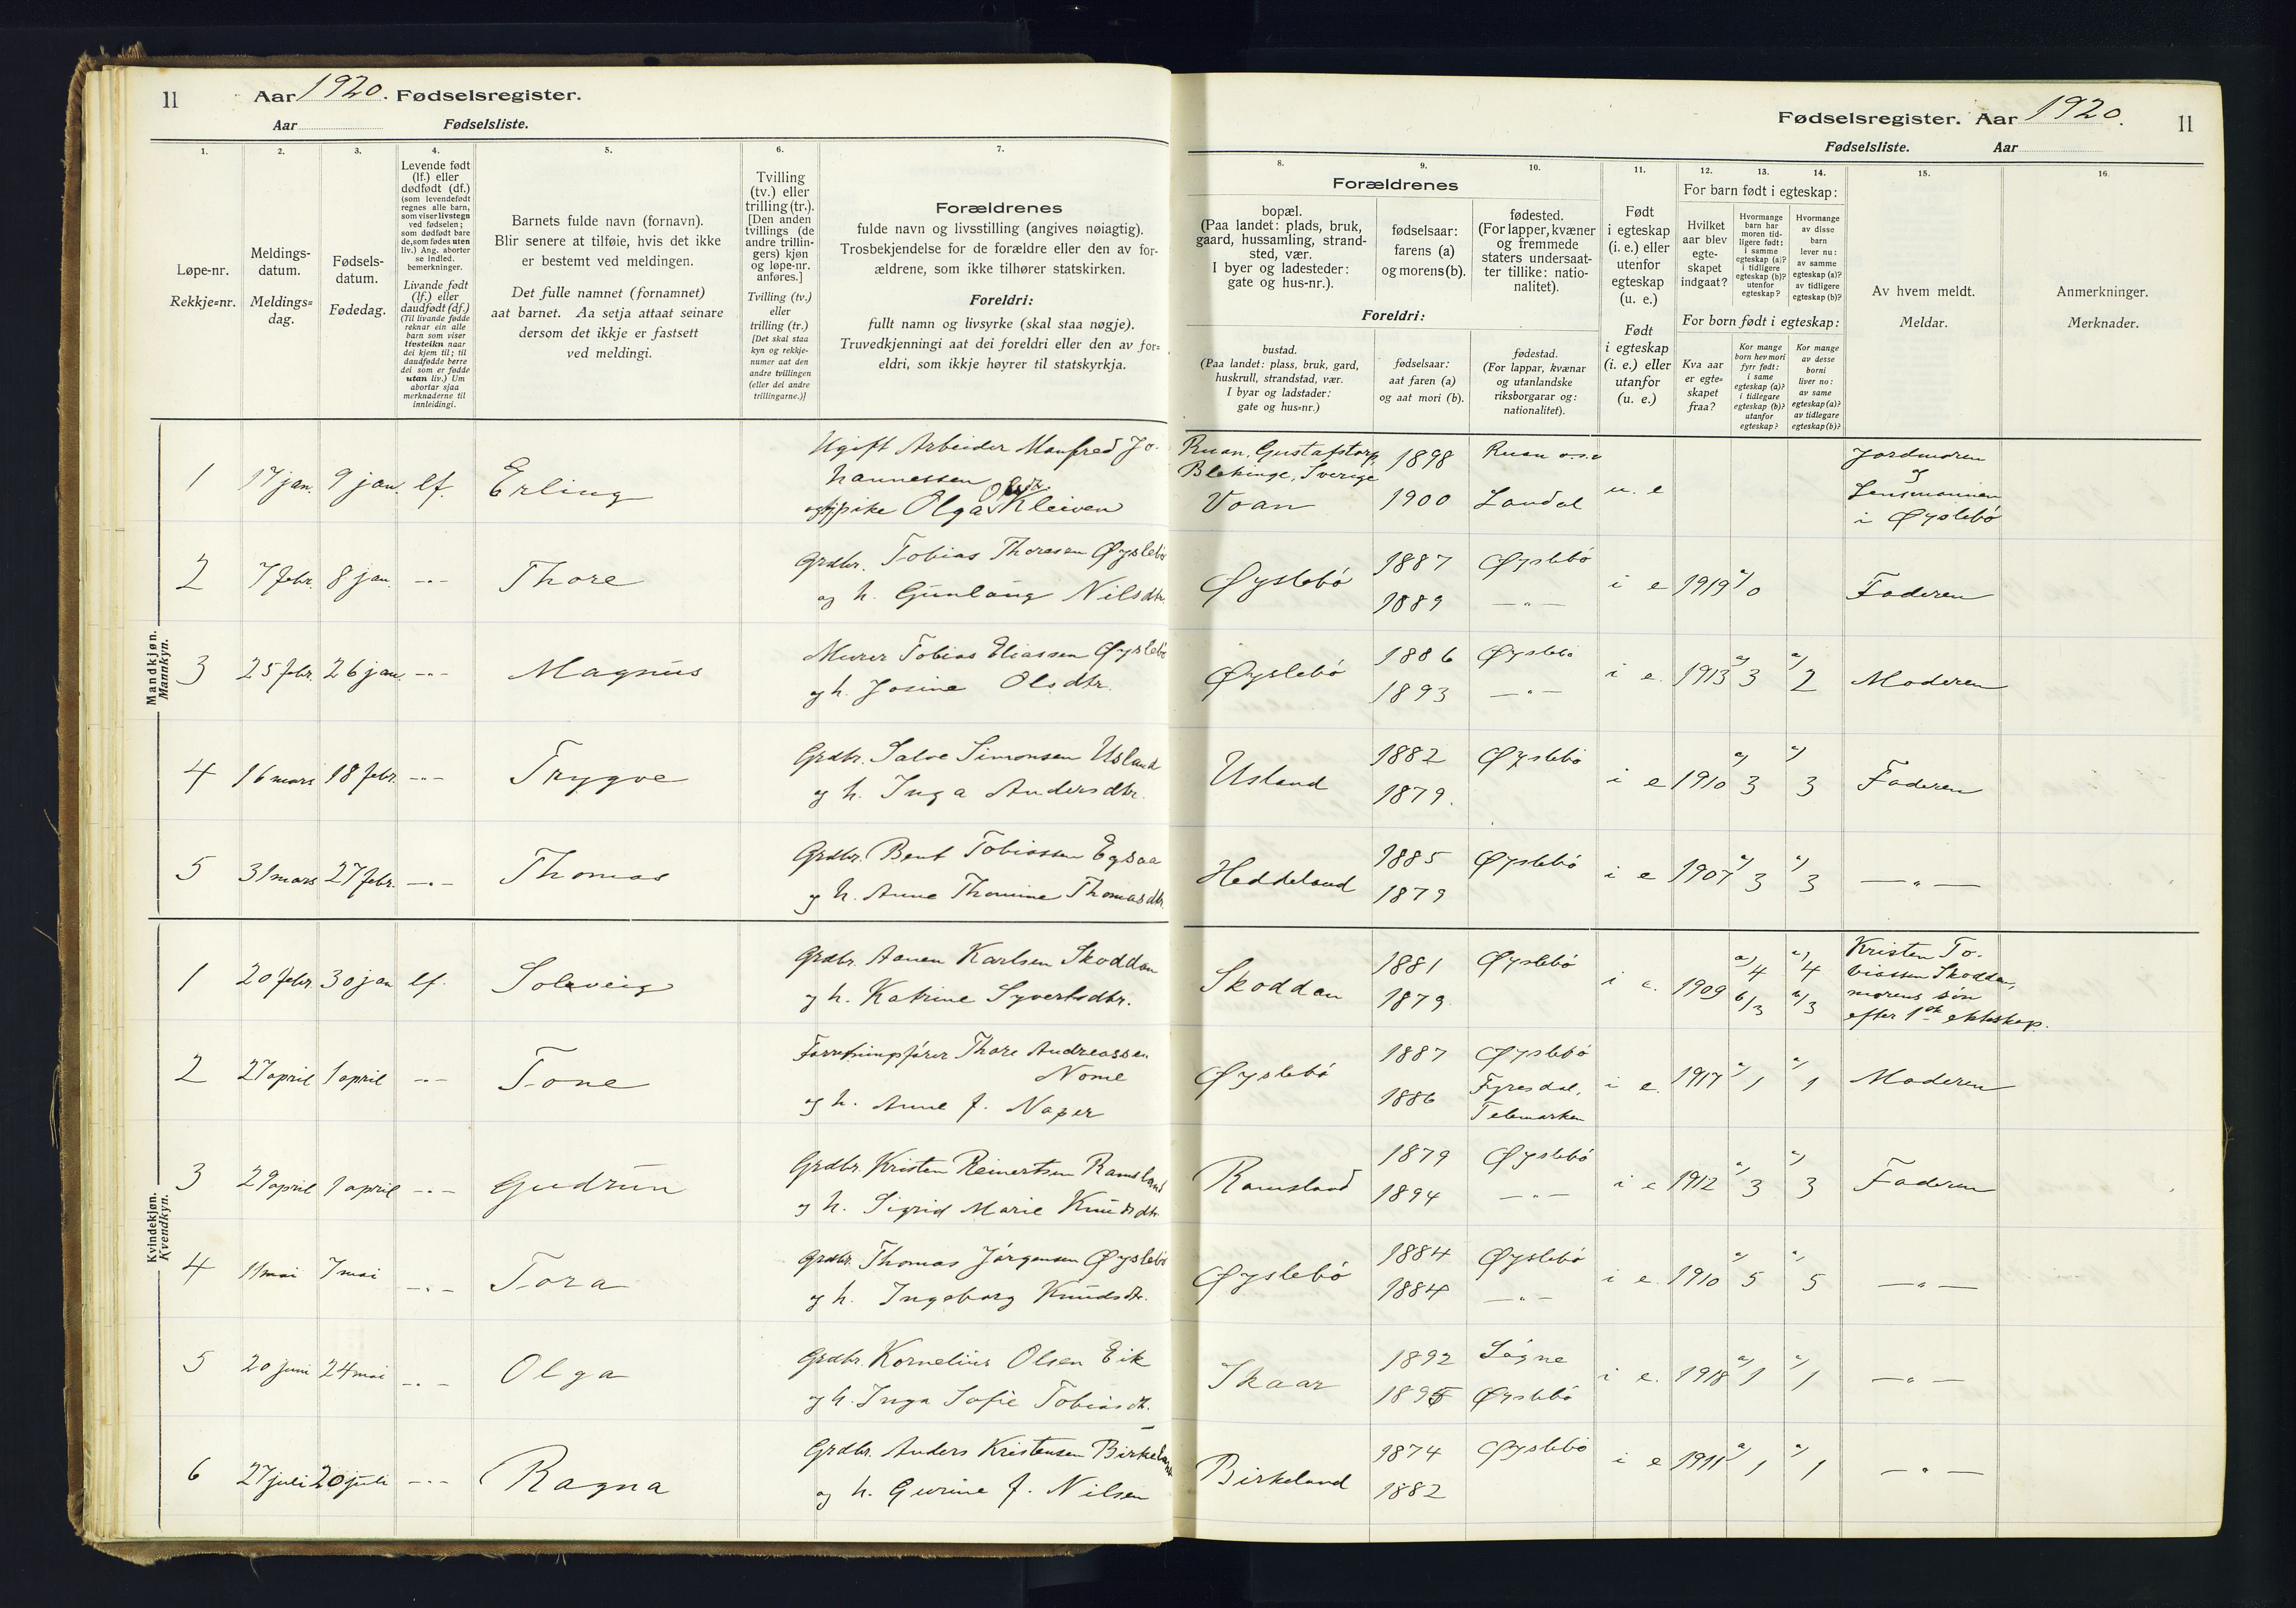 11 Aar 1920. Fødselsregister.
Aar Fødselsliste.
Fødselsregister. Aar 1920. 11
Fødselsliste. Aar
1. 2. 3. 4. 5. 6. 7.
Løpe-nr.
Rekkje=nr.
Meldings-
datum.
Meldings=
dag.
Fødsels-
datum.
Fødedag.
Levende født
(lf.) eller
dødfødt (df.)
(som levendefødt
regnes alle barn,
som viser livstegn
ved fødselen;
som dødfødt bare
de, som fødes uten
liv.) Ang. aborter
se indled.
bemerkninger.
Livande født
(lf.) eller
daudfødt (df.)
(Til livande fødde
reknar ein alle
barn som viser
livsteikn naar
dei kjem til; til
daudfødde berre
dei som er fødde
utan liv.) Um
abortar sjaa
merknaderne til
innleidingi.
Barnets fulde navn (fornavn).
Blir senere at tilføie, hvis det ikke
er bestemt ved meldingen.
Det fulle namnet (fornamnet)
aat barnet. Aa setja attaat seinare
dersom det ikkje er fastsett
ved meldingi.
Tvilling
(tv.) eller
trilling (tr.).
[Den anden
tvillings (de
andre trillin-
gers) kjøn
og løpe-nr.
anføres.]
Tvilling (tv.)
eller
trilling (tr.)
[Det skal staa
kyn og rekkje-
numer aat den
andre tvillingen
(eller dei andre
trillingarne.)]
Forældrenes
fulde navn og livsstilling (angives nøiagtig).
Trosbekjendelse for de forældre eller den av for-
ældrene, som ikke tilhører statskirken.
Foreldri:
fullt namn og livsyrke (skal staa nøgje).
Truvedkjenningi aat dei foreldri eller den av for=
eldri, som ikkje høyrer til statskyrkja.
8. 9. 10. 11. 12. 13. 14. 15. 16.
Forældrenes
bopæl.
(Paa landet: plads, bruk,
gaard, hussamling, strand-
sted, vær.
I byer og ladesteder:
gate og hus-nr.).
fødselsaar:
farens (a)
og morens (b).
fødested.
(For lapper, kvæner
og fremmede
staters undersaat-
ter tillike: natio-
nalitet).
Foreldri:
bustad.
(Paa landet: plass, bruk, gard,
huskrull, strandstad, vær.
I byar og ladstader:
gate og hus=nr.)
fødselsaar:
aat faren (a)
og aat mori (b).
fødestad.
(For lappar, kvænar
og utanlandske
riksborgarar og:
nationalitet).
Født
i egteskap
(i. e.) eller
utenfor
egteskap
(u. e.)
Født
i egteskap
(i. e.) eller
utanfor
(u. e.)
For barn født i egteskap:
Hvilket
aar blev
egte-
skapet
indgaat?
Hvormange
barn har
moren tid-
ligere født:
i samme
egteskap (a)?
i tidligere
egteskap (b)?
utenfor
egteskap?
Hvormange
av disse
barn
lever nu:
av samme
egteskap (a)?
av tidligere
egteskap (b)?
For born født i egteskap:
Kva aar
er egte=
skapet
fraa?
Kor mange
born hev mori
fyrr født:
i same
egteskap (a)?
i tidlegare
egteskap (b)?
utanfor
egteskap?
Kor mange
av desse
borni
liver no:
av same
egteskap (a)?
av tidlegare
egteskap (b)?
Av hvem meldt.
Meldar.
Anmerkninger.
Merknader.
Mandkjøn.
Mannkyn.
1 17 jan. 9 jan. lf. Erling
Ugift Arbeider Manfred Jo-
hannessen
og pike Olga Kleiven
Ruan, Gustafstorp,
Blekinge, Sverige
Voan
1898 Ruan
1900 Laudal
u. e
Jordmoren
og
Lensmannen
i Øyslebø
2 7 febr. 8 jan. -"- Thore
Grdbr. Tobias Thoresen Øyslebø
og h. Gunlaug Nilsdtr.
Øyslebø 1887 Øyslebø
1889 -"-
i e 1919 a/0 Faderen
3 25 febr. 26 jan. -"- Magnus
Murer Tobias Eliassen Øyslebø
og h. Josine Olsdtr.
Øyslebø 1886 Øyslebø
1893 -"-
i e. 1913 a/3 a/2 Moderen
4 16 mars 18 febr. -"- Trygve
Grdbr. Salve Simonsen Usland
og h. Inga Andersdtr.
Usland 1882 Øyslebø
1879.
i e 1910 a/3 a/3 Faderen
5 31 mars 27 febr. -"- Thomas
Grdbr. Bent Tobiassen Egsaa
og h. Anne Thomine Thomasdtr.
Heddeland 1885 Øyslebø
1879
i e 1907 a/3 a/3 -"-
Kvindekjøn.
Kvendkyn.
1 20 febr. 30 jan lf. Solveig
Grdbr. Aanen Karlsen Skoddan
og h. Katrine Syvertsdtr.
Skoddan 1881 Øyslebø
1879.
i e. 1909 a/4 b/3 a/4 b/3
Kristen To-
biassen Skoddan,
morens søn
efter 1ste ekteskap.
2 27 april 1 april -"- Tone
Forretningsfører Thore Andreassen
Nome
og h. Anne J. Naper
Øyslebø 1887 Øyslebø
1886 Fyresdal,
Telemarken
i e. 1917 a/1 a/1 Moderen
3 29 april 1 april -"- Gudrun
Grdbr. Kristen Reinertsen Ramsland
og h. Sigrid Marie Knudsdtr.
Ramsland 1879 Øyslebø
1894 -"-
i e 1912 a/3 a/3 Faderen
4 11 mai 7 mai -"- Tora
Grdbr. Thomas Jørgensen Øyslebø
og h. Ingeborg Knudsdtr.
Øyslebø 1884 Øyslebø
1884 -"-
i e. 1910 a/5 a/5 -"-
5 20 juni 24 mai -"- Olga
Grdbr. Kornelius Olsen Eik
og h. Inga Sofie Tobiasdtr.
Skaar 1892 Søgne
1895 Øyslebø
i e. 1918 a/1 a/1 -"-
6 27 juli 20 juli -"- Ragna
Grdbr. Anders Kristensen Birkeland
og h. Gurine J. Nilsen
Birkeland 1874 Øyslebø
1882
i e 1911 a/1 a/1 -"-